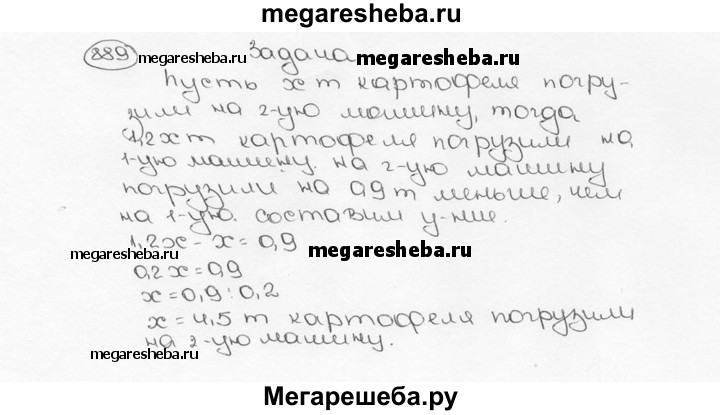 megaresheba.ru
889 megaresheba.ru Задача megaresheba.ru
Пусть x т картофеля погру-
зили на 2-ую машину, тогда
1,2x т картофеля погрузили на
1-ую машину. на 2-ую машину
погрузили на 0,9 т меньше, чем
на 1-ую. составим у-ние.
1,2x - x = 0,9
megaresheba.ru megaresheba.ru
0,2x = 0,9
x = 0,9 : 0,2
x = 4,5 т картофеля погрузили
megaresheba.ru на 2-ую машину.
Мегарешеба.ру